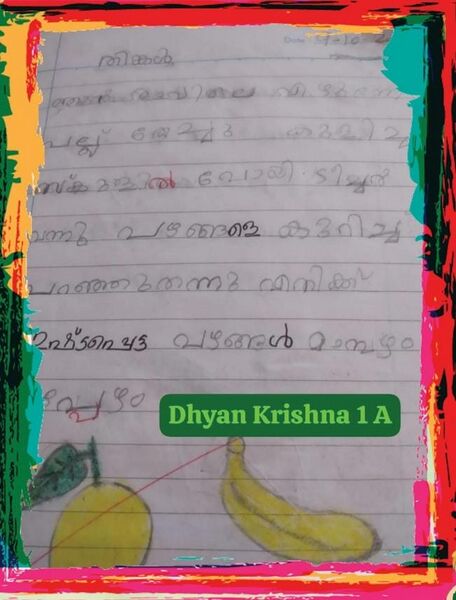 Date
തിങ്കൾ
ഞാൻ രാവിലെ എഴുന്നേ
പല്ല് തേച്ചു കുളിച്ചു
സ്കൂളിൽ പോയി. ടീച്ചർ
വന്നു പഴങ്ങളെ കുറിച്ച്
പറഞ്ഞുതന്നു എനിക്ക്
ഇഷ്ടപ്പെട്ട പഴങ്ങൾ മാമ്പഴം
Dhyan Krishna 1 A